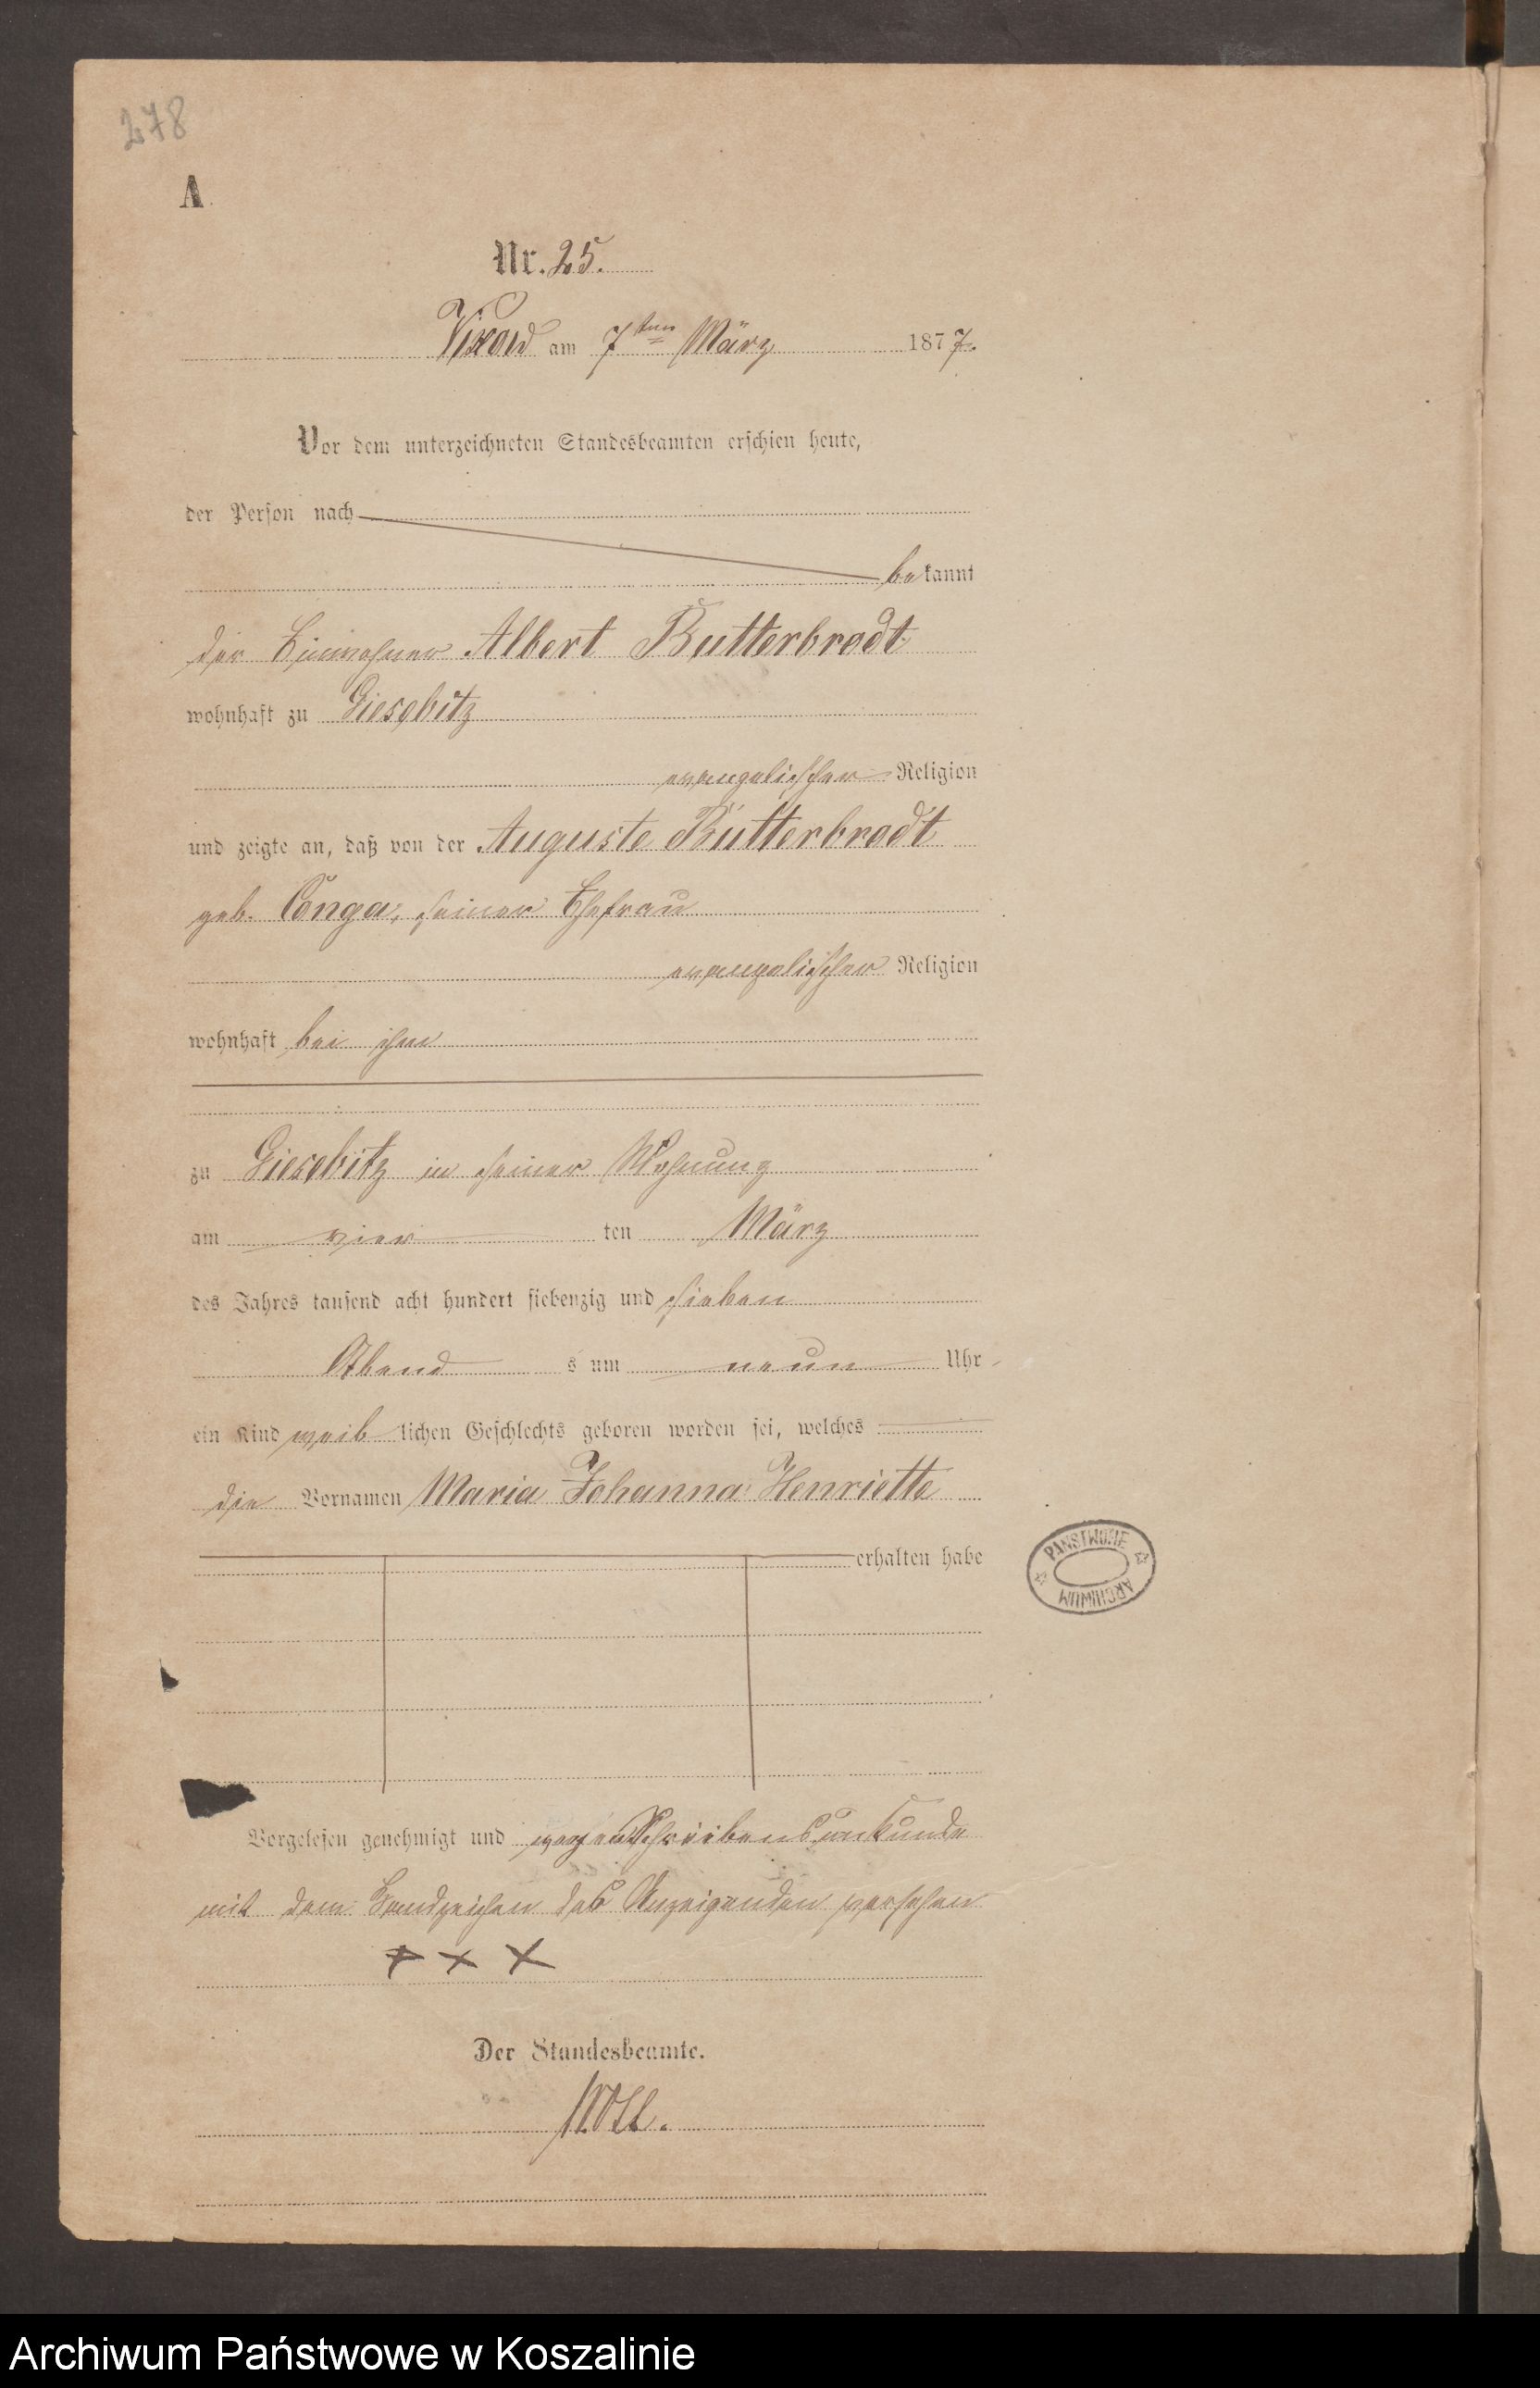 278
A.
Nr. 25.
Vixow am 7ten März 1877.
Vor dem unterzeichneten Standesbeamten erschien heute,
der Person nach
bekannt
der Einwohner Albert Butterbrodt
wohnhaft zu Giesebitz
evangelischer Religion
und zeigte an, daß von der Auguste Butterbrodt
geb. Conga, seiner Ehefrau
evangelischer Religion
wohnhaft bei ihm
zu Giesebitz in seiner Wohnung
am vier ten März
des Jahres tausend acht hundert siebenzig und sieben
Abend s um neun Uhr
ein Kind weib lichen Geschlechts geboren worden sei, welches
die Vornamen Maria Johanna Henriette
erhalten habe
PAŃSTWOWE
ARCHIWUM
Vorgelesen genehmigt und wegen Schreibensunkunde
mit dem Handzeichen des Anzeigenden versehen
+ x x
Der Standesbeamte.
Archiwum Państwowe w Koszalinie